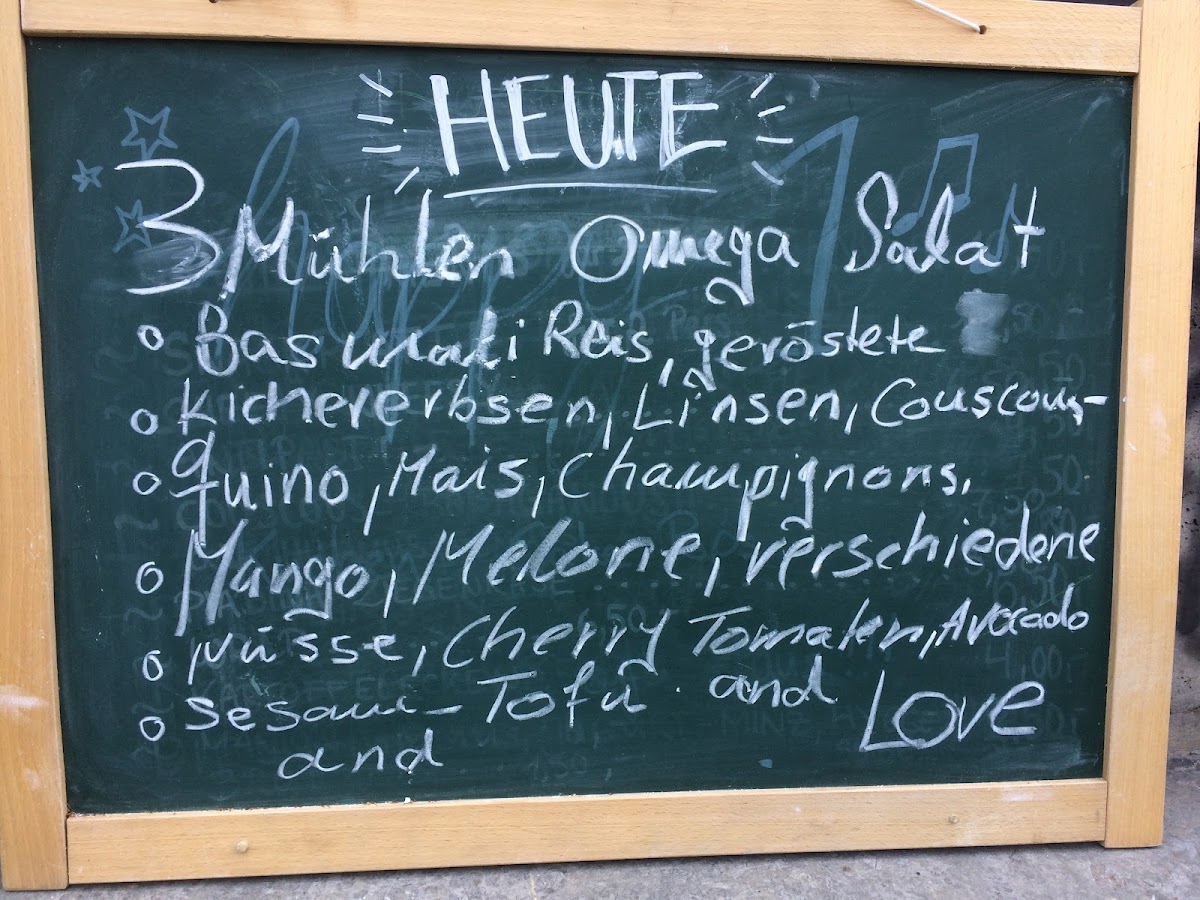 HEUTE
3 Mühlen Omega Salat
o Basmati Reis, geröstete
o Kichererbsen, Linsen, Couscous-
o Quino, Mais, Champignons,
o Mango, Melone, verschiedene
o Nüsse, Cherry Tomaten, Avocado
o Sesam - Tofu and LOVE
and